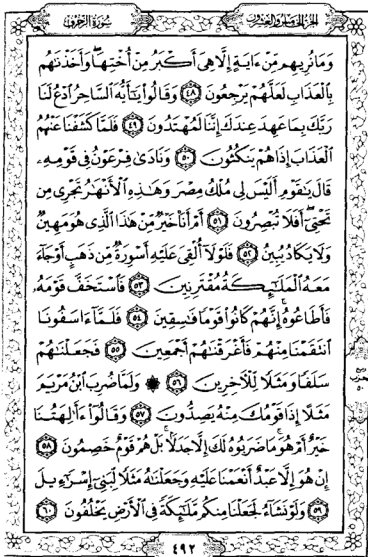 الجزء الخامس والعشرون
سورة الزخرف
وَمَا نُرِيهِم مِّنْ ءَايَةٍ إِلَّا هِىَ أَكْبَرُ مِنْ أُخْتِهَا وَأَخَذْنَٰهُم
بِالْعَذَابِ لَعَلَّهُمْ يَرْجِعُونَ ٤٨ وَقَالُوا۟ يَٰٓأَيُّهَ السَّاحِرُ ادْعُ لَنَا
رَبَّكَ بِمَا عَهِدَ عِندَكَ إِنَّنَا لَمُهْتَدُونَ ٤٩ فَلَمَّا كَشَفْنَا عَنْهُمُ
الْعَذَابَ إِذَا هُمْ يَنكُثُونَ ٥٠ وَنَادَىٰ فِرْعَوْنُ فِى قَوْمِهِۦ
قَالَ يَٰقَوْمِ أَلَيْسَ لِى مُلْكُ مِصْرَ وَهَٰذِهِ الْأَنْهَٰرُ تَجْرِى مِن
تَحْتِىٓ أَفَلَا تُبْصِرُونَ ٥١ أَمْ أَنَا۠ خَيْرٌ مِّنْ هَٰذَا الَّذِى هُوَ مَهِينٌ
وَلَا يَكَادُ يُبِينُ ٥٢ فَلَوْلَآ أُلْقِىَ عَلَيْهِ أَسْوِرَةٌ مِّن ذَهَبٍ أَوْ جَآءَ
مَعَهُ الْمَلَٰٓئِكَةُ مُقْتَرِنِينَ ٥٣ فَاسْتَخَفَّ قَوْمَهُۥ
فَأَطَاعُوهُ إِنَّهُمْ كَانُوا۟ قَوْمًا فَٰسِقِينَ ٥٤ فَلَمَّآ ءَاسَفُونَا
انتَقَمْنَا مِنْهُمْ فَأَغْرَقْنَٰهُمْ أَجْمَعِينَ ٥٥ فَجَعَلْنَٰهُمْ
سَلَفًا وَمَثَلًا لِّلْءَاخِرِينَ ٥٦ ۞ وَلَمَّا ضُرِبَ ابْنُ مَرْيَمَ
مَثَلًا إِذَا قَوْمُكَ مِنْهُ يَصِدُّونَ ٥٧ وَقَالُوٓا۟ ءَأَٰلِهَتُنَا
خَيْرٌ أَمْ هُوَ مَا ضَرَبُوهُ لَكَ إِلَّا جَدَلًۢا بَلْ هُمْ قَوْمٌ خَصِمُونَ ٥٨
إِنْ هُوَ إِلَّا عَبْدٌ أَنْعَمْنَا عَلَيْهِ وَجَعَلْنَٰهُ مَثَلًا لِّبَنِىٓ إِسْرَٰٓءِيلَ
٥٩ وَلَوْ نَشَآءُ لَجَعَلْنَا مِنكُم مَّلَٰٓئِكَةً فِى الْأَرْضِ يَخْلُفُونَ ٦٠
٤٩٢